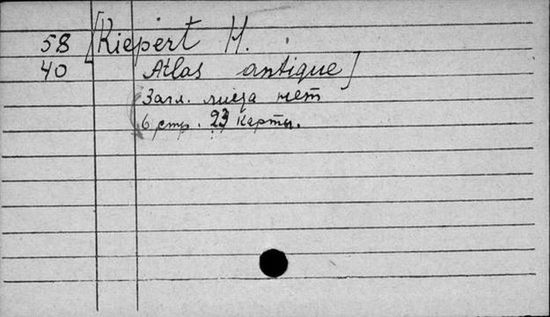 58 [Kiepert H.
40 Atlas antique]
Загл. листа нет
6 стр. 23 карты.